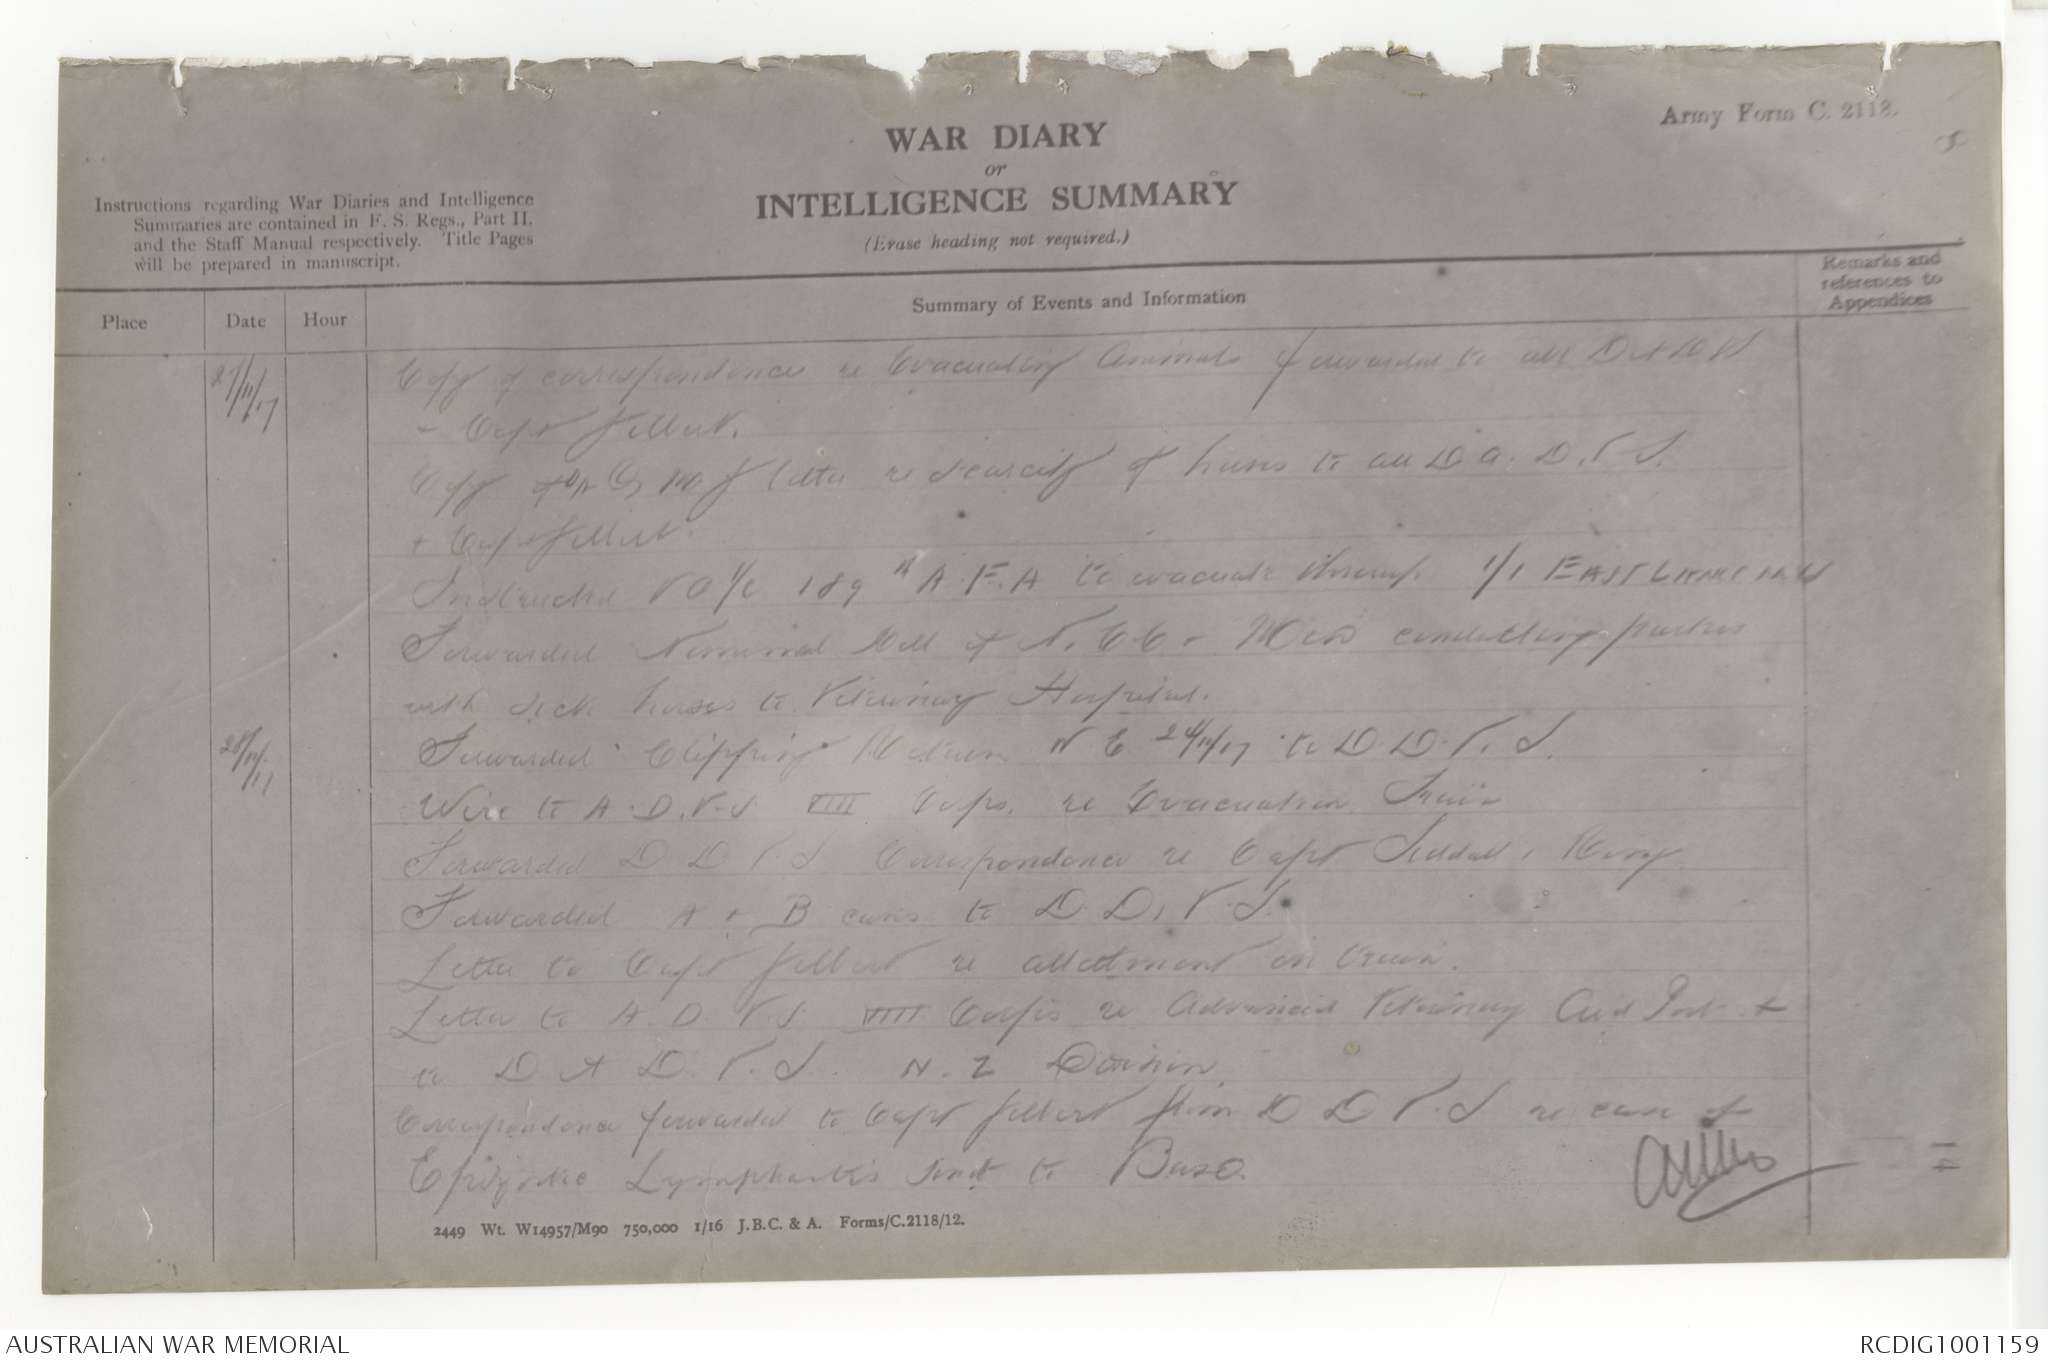 Army Form C. 2118.
WAR DIARY
or
INTELLIGENCE SUMMARY
(Erase heading not required.)
Instructions regarding War Diaries and Intelligence
Summaries are contained in F. S. Regs., Part II.
and the Staff Manual respectively. Title Pages
will be prepared in manuscript.
Place
Date
Hour
Summary of Events and Information
Remarks and
references to
Appendices
27/11/17
Copy of correspondence re Evacuating Animals forwarded to all
+ Capt Filbert.
Copy of Q M G letter re scarcity of horses to all D.A.D.V.S.
+ Capt Filbert.
Instructed V O i/c 189 A.F.A to evacuate through 1/1 EAST LANC
Forwarded Nominal Roll of N.C.O + Men conducting parties
with sick horses to Veterinary Hospital.
28/11/17
Forwarded Clipping Return W E 24/11/17 to D D.V.S.
Wire to A.D.V.S VIII Corps. re Evacuation Train
Forwarded D D V S Correspondence re Capt Siddall
Forwarded A + B cases to D.D.V.S.
Letter to Capt Filbert re allotment on train.
Letter to A.D.V.S. VIII Corps re Advanced Veterinary Aid Post +
to D A D.V.S. N.Z Division.
Correspondence forwarded to Capt Filbert from D D V.S re case of
Epizootic Lymphangitis sent to Base.
2449 Wt. W14957/M90 750,000 1/16 J.B.C. & A. Forms/C.2118/12.
AUSTRALIAN WAR MEMORIAL
RCDIG1001159